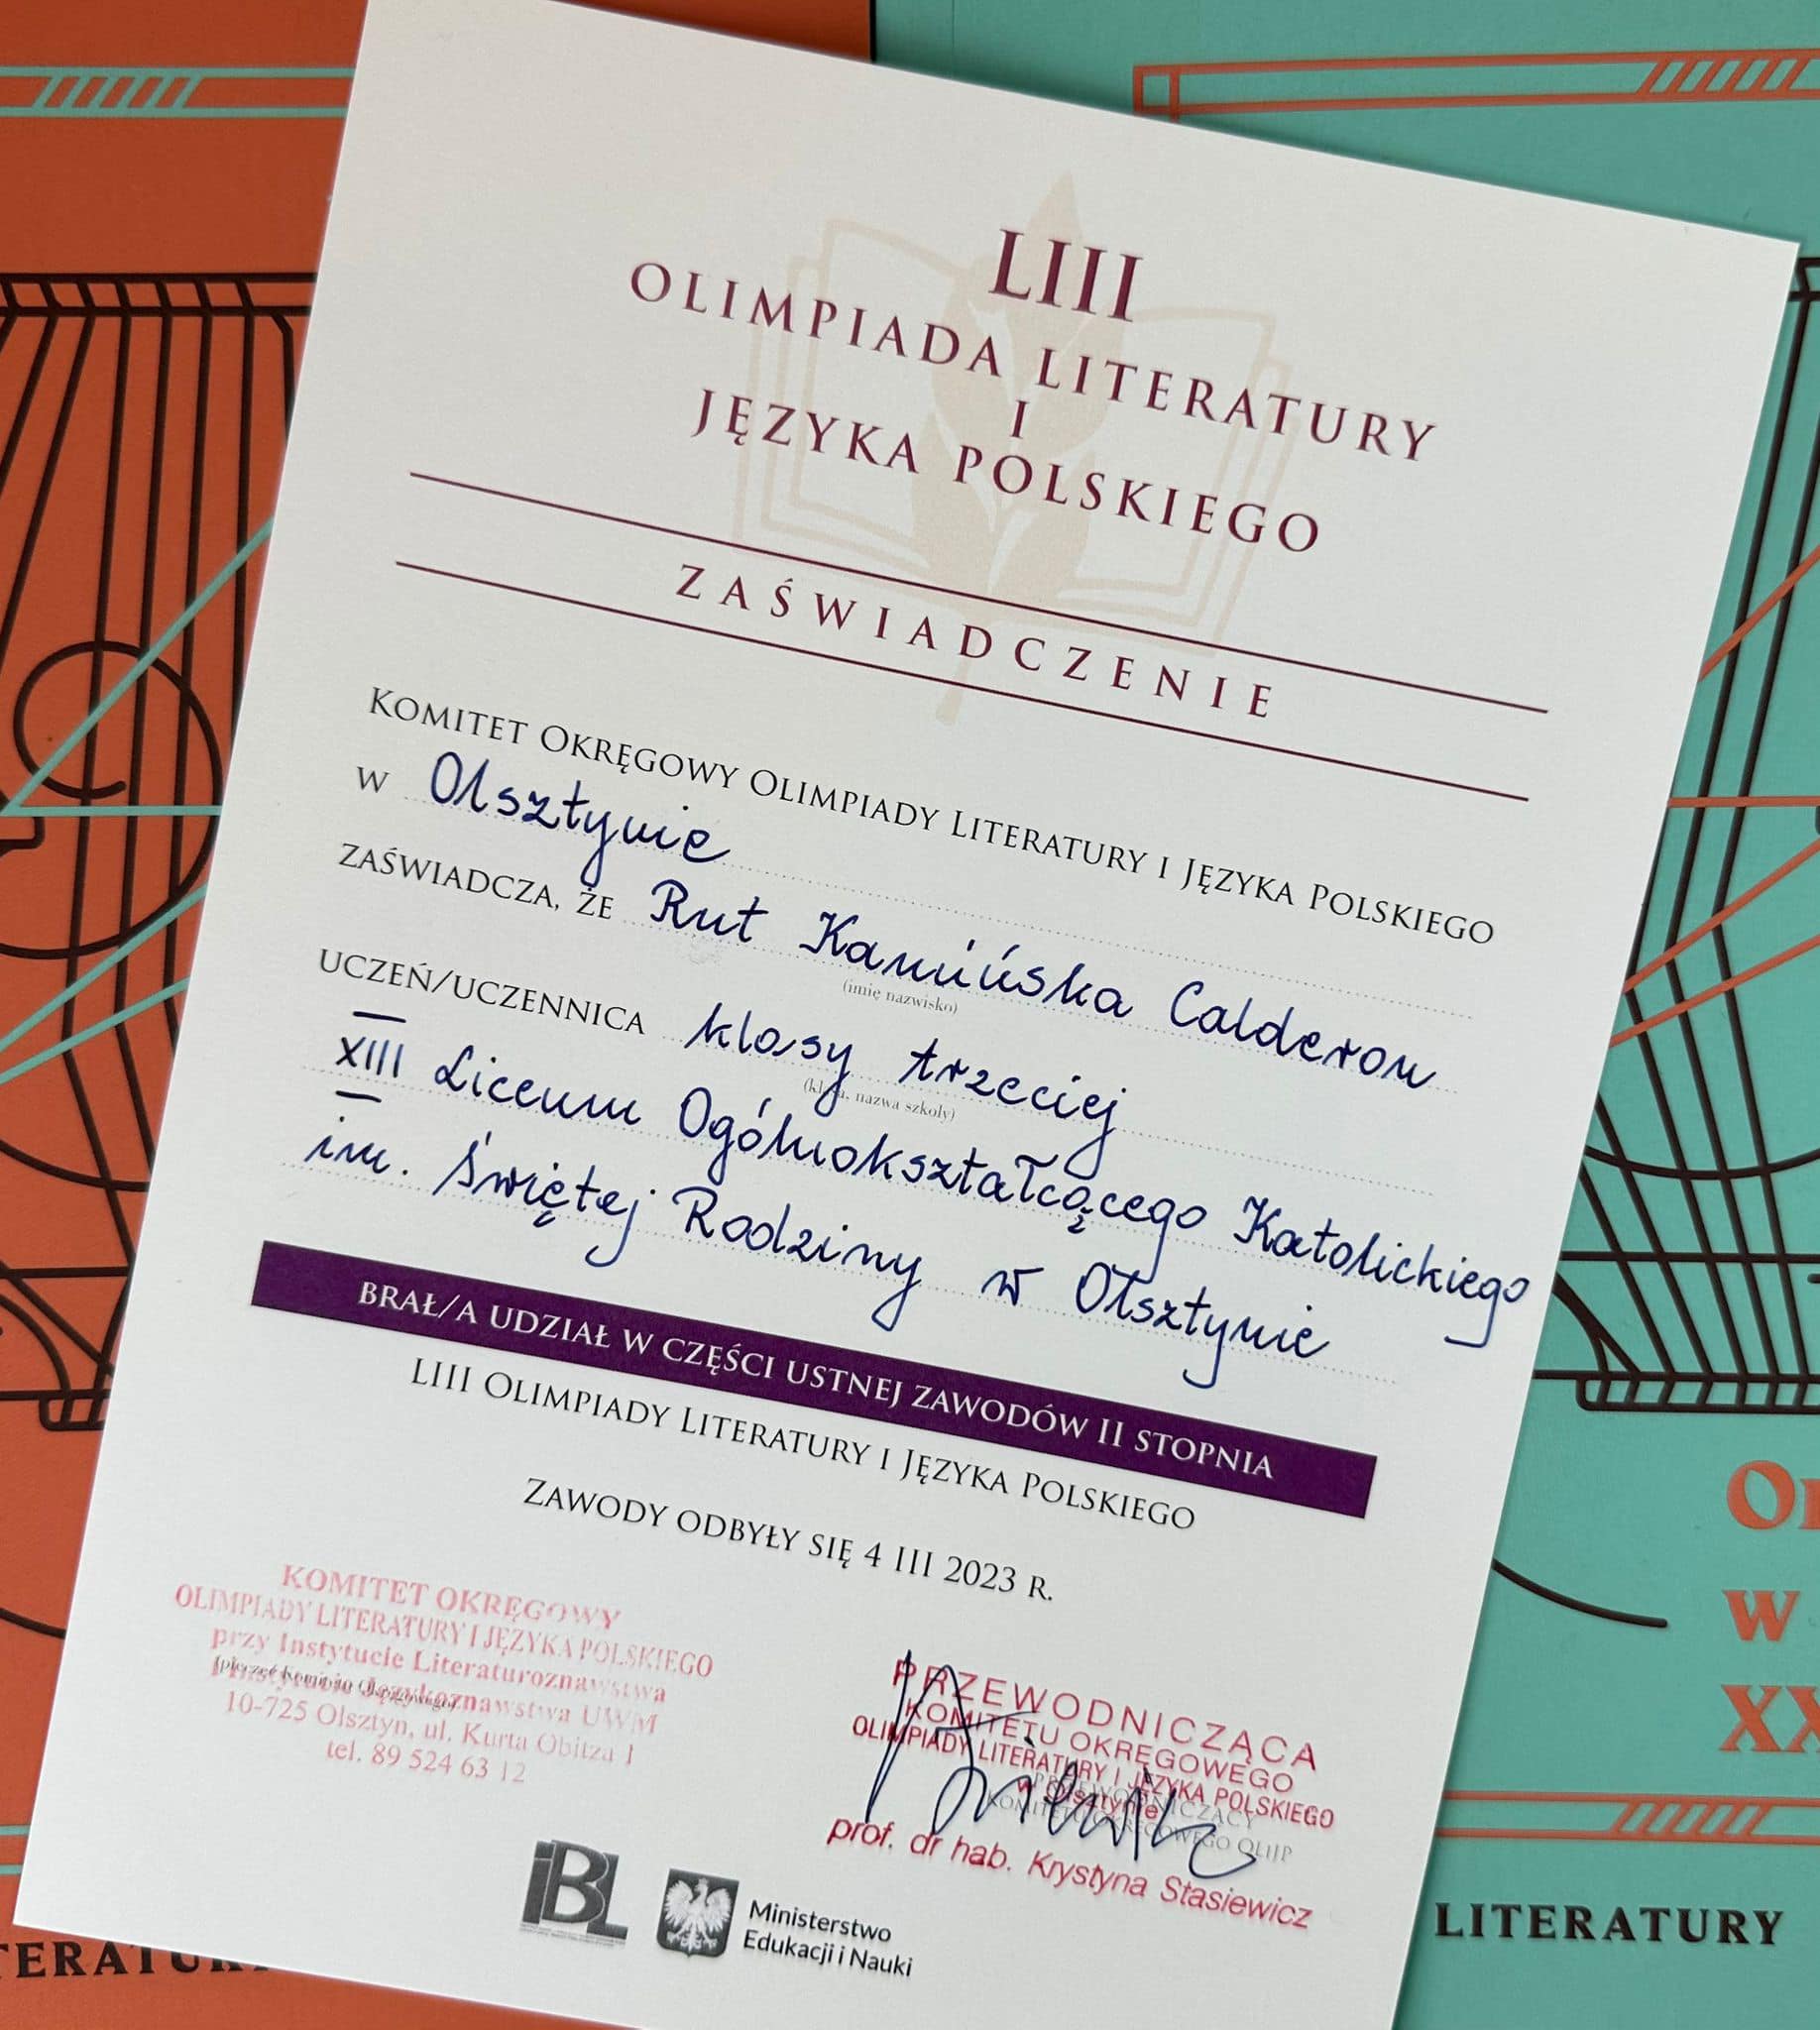 LIII
OLIMPIADA LITERATURY
I
JĘZYKA POLSKIEGO
ZAŚWIADCZENIE
KOMITET OKRĘGOWY OLIMPIADY LITERATURY I JĘZYKA POLSKIEGO
W Olsztynie
ZAŚWIADCZA, ŻE Rut Kamińska Calderon
(imię nazwisko)
UCZEŃ/UCZENNICA klasy trzeciej
nazwa szkoły)
XIII Liceum Ogólnokształcącego Katolickiego
im. Świętej Rodziny w Olsztynie
BRAŁ/A UDZIAŁ W CZĘŚCI USTNEJ ZAWODÓW II STOPNIA
LIII OLIMPIADY LITERATURY I JĘZYKA POLSKIEGO
ZAWODY ODBYŁY SIĘ 4 III 2023 R.
KOMITET OKRĘGOWY
OLIMPIADY LITERATURY I JĘZYKA POLSKIEGO
przy Instytucie Literaturoznawstwa
Językoznawstwa UWM
10-725 Olsztyn, ul. Kurta Obitza 1
tel. 89 524 63 12
PRZEWODNICZĄCA
KOMITETU OKRĘGOWEGO
OLIMPIADY LITERATURY I JĘZYKA POLSKIEGO
w Olsztynie
PRZEWODNICZĄCY
KOMITETU OKRĘGOWEGO OLIJP
prof. dr hab. Krystyna Stasiewicz
IBL
Ministerstwo
Edukacji i Nauki
W
XX
LITERATURY